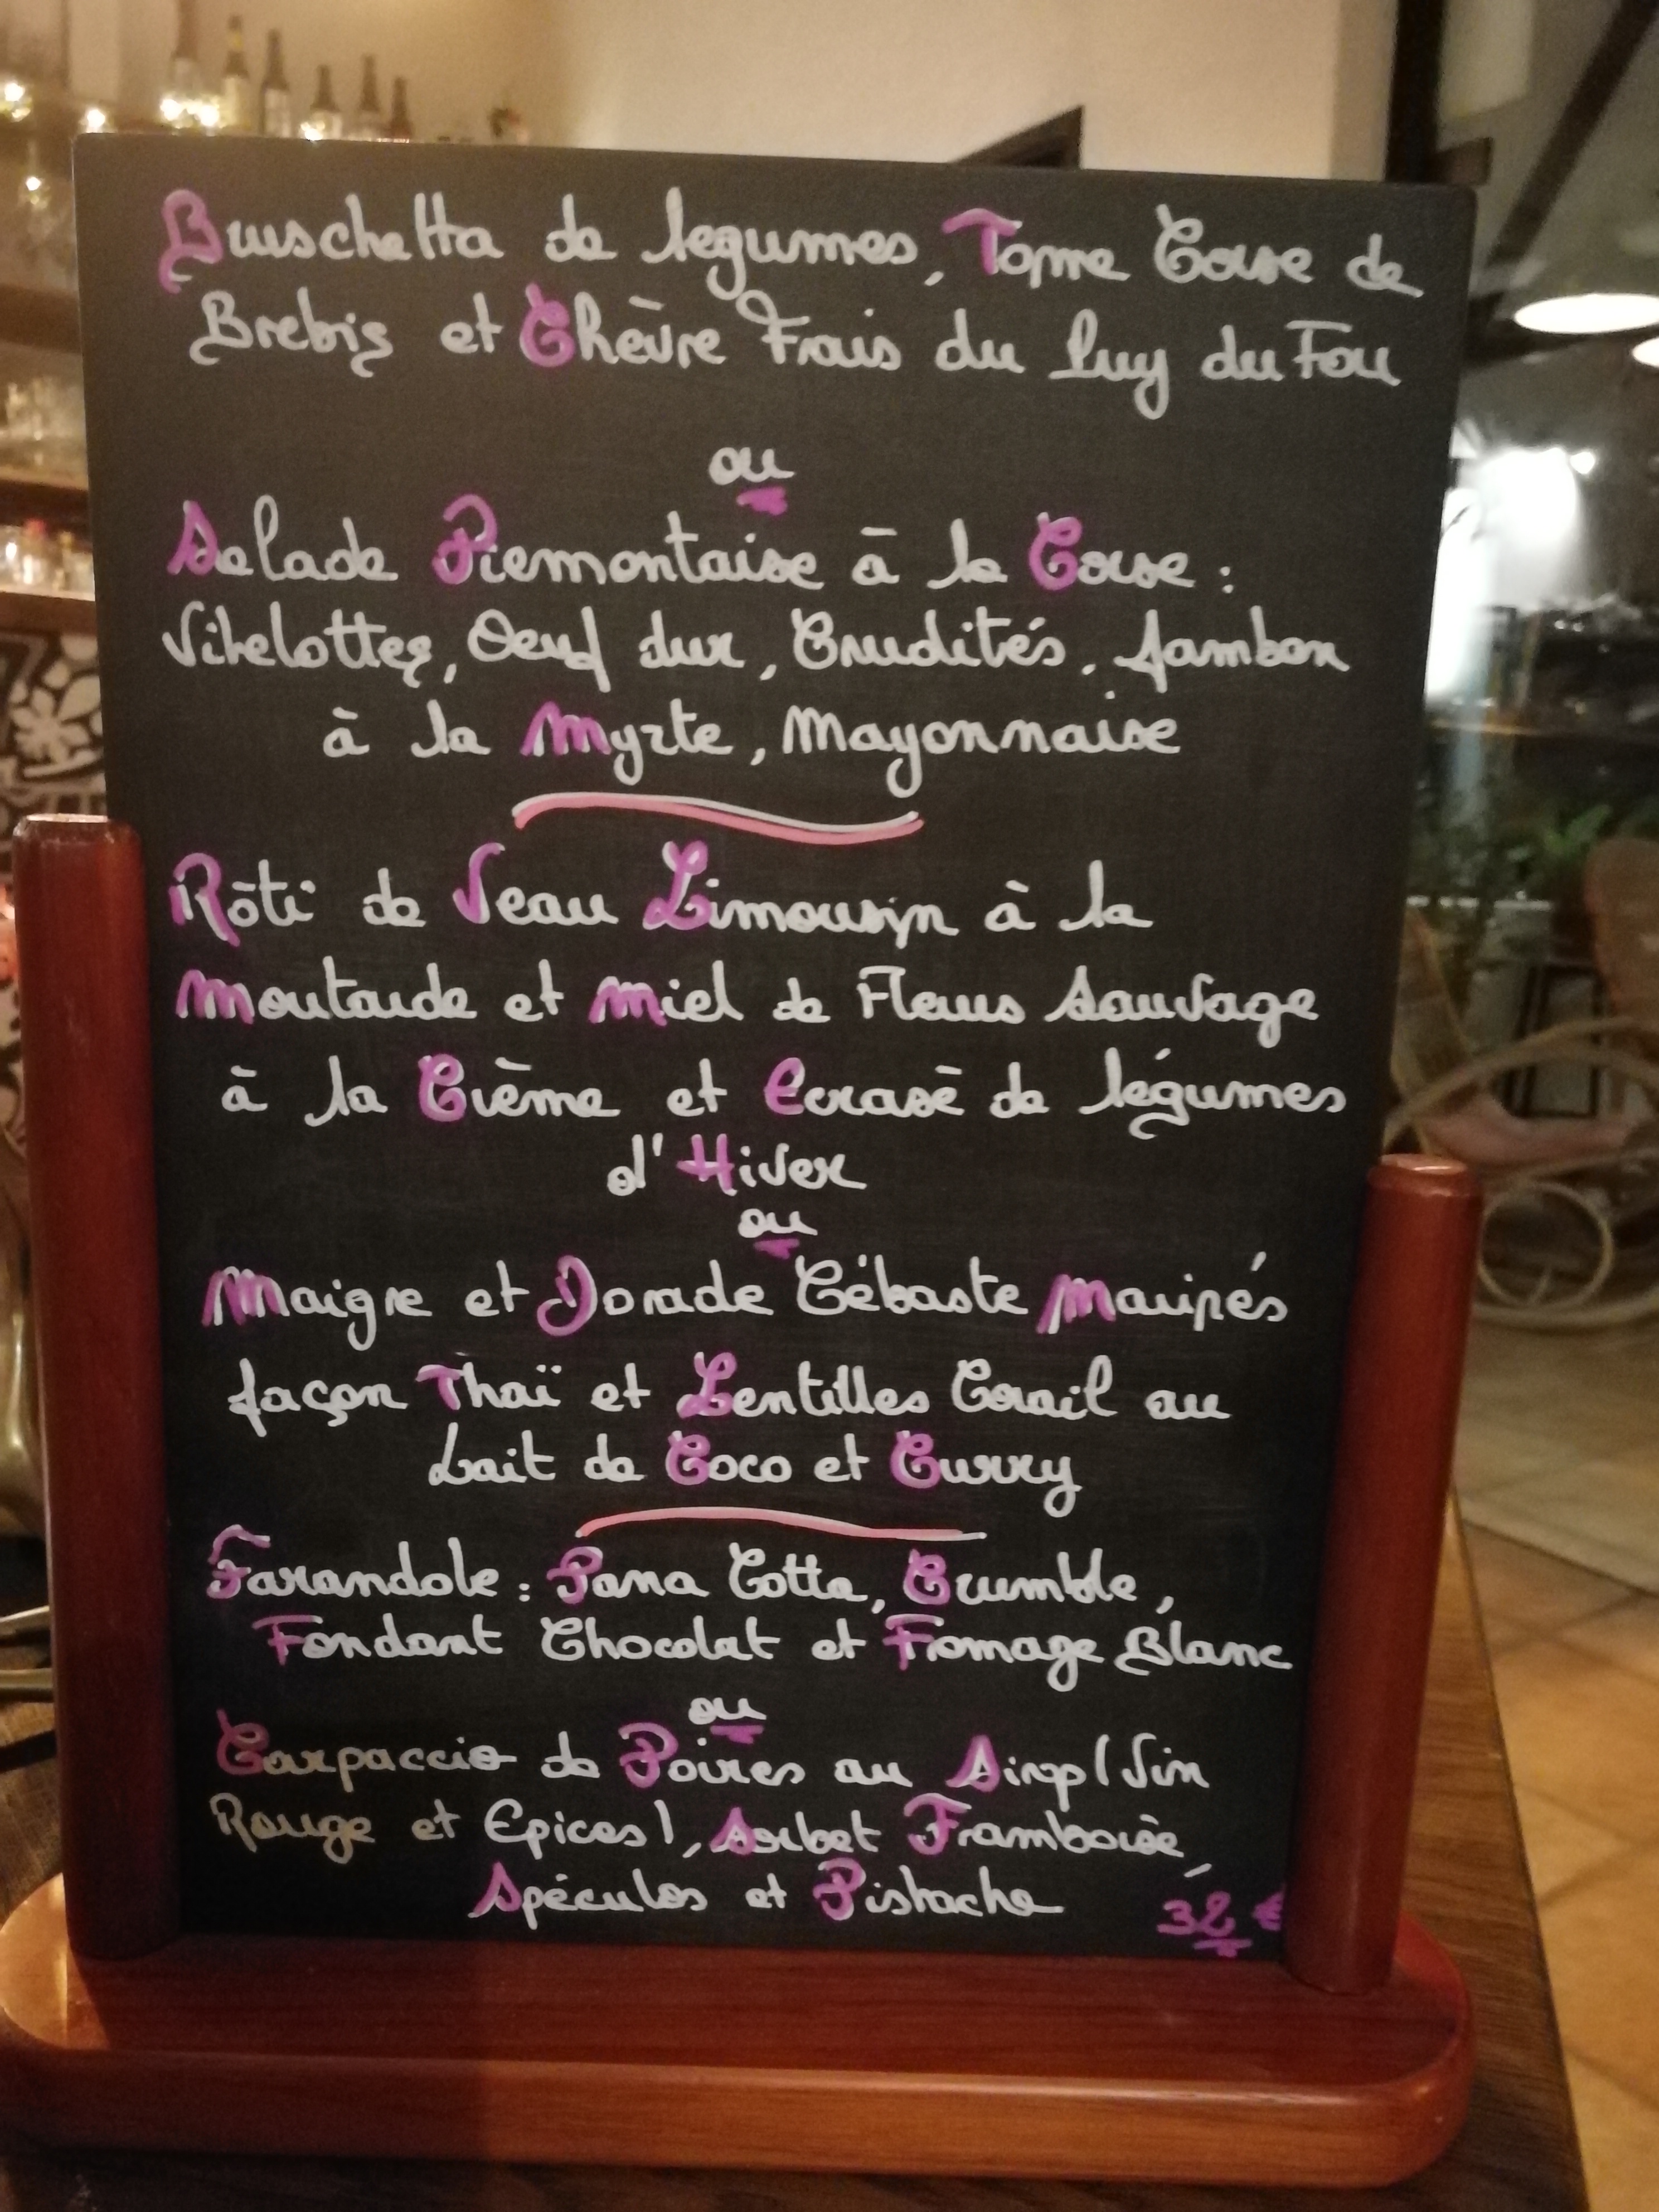 Bruschetta de legumes, Tome Corse de
Brebis et Chèvre Frais du Puy du Fou
ou
Salade Piemontaise à la Corse :
Vitelottes, Oeuf dur, Crudités, Jambon
à la Myrte, Mayonnaise
Rôti de Veau Limousin à la
Moutarde et Miel de Fleurs Sauvage
à la Crème et Ecrasé de légumes
d'Hiver
ou
Maigre et Dorade Cébaste Marinés
façon Thaï et Lentilles Corail au
Lait de Coco et Curry
Farandole : Pana Cotta, Crumble,
Fondant Chocolat et Fromage Blanc
ou
Carpaccio de Poires au Sirop (Vin
Rouge et Epices), Sorbet Framboise,
Spéculos et Pistache
32 €